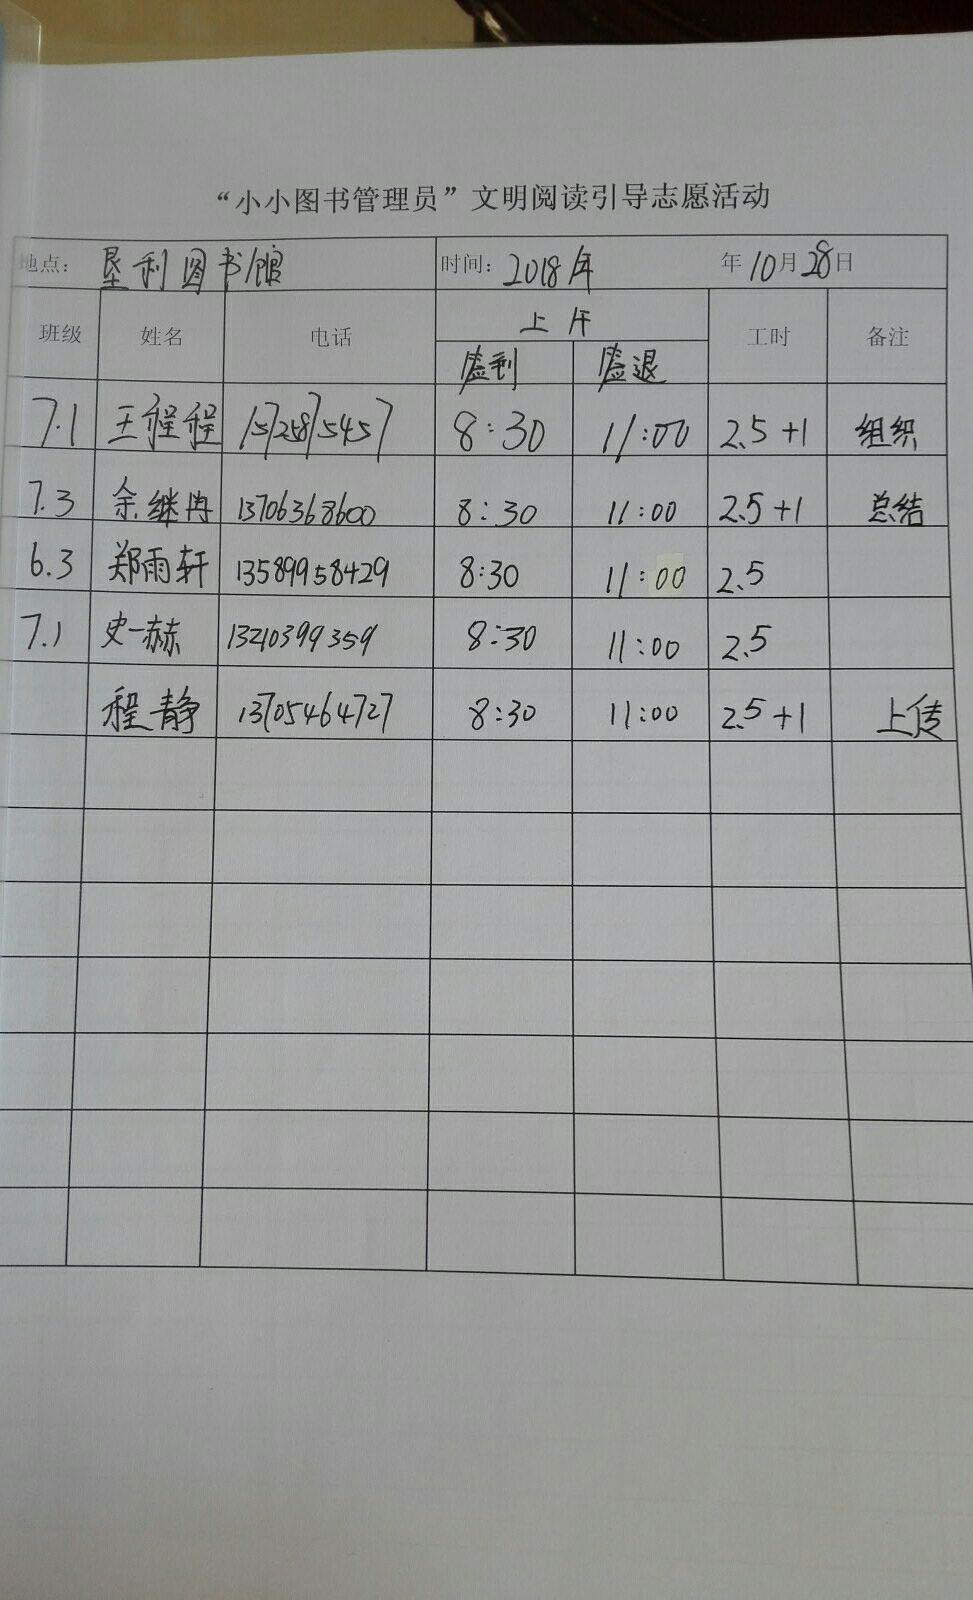 “小小图书管理员”文明阅读引导志愿活动
地点： 垦利图书馆 时间：2018年 年10月28日
班级 姓名 电话 上午 工时 备注
签到 签退
7.1 王程程 15725875457 8:30 11:00 2.5+1 组织
7.3 余继冉 13706368600 8:30 11:00 2.5+1 总结
6.3 郑雨轩 13589958429 8:30 11:00 2.5
7.1 史一赫 13210399359 8:30 11:00 2.5
程静 13705464727 8:30 11:00 2.5+1 上传